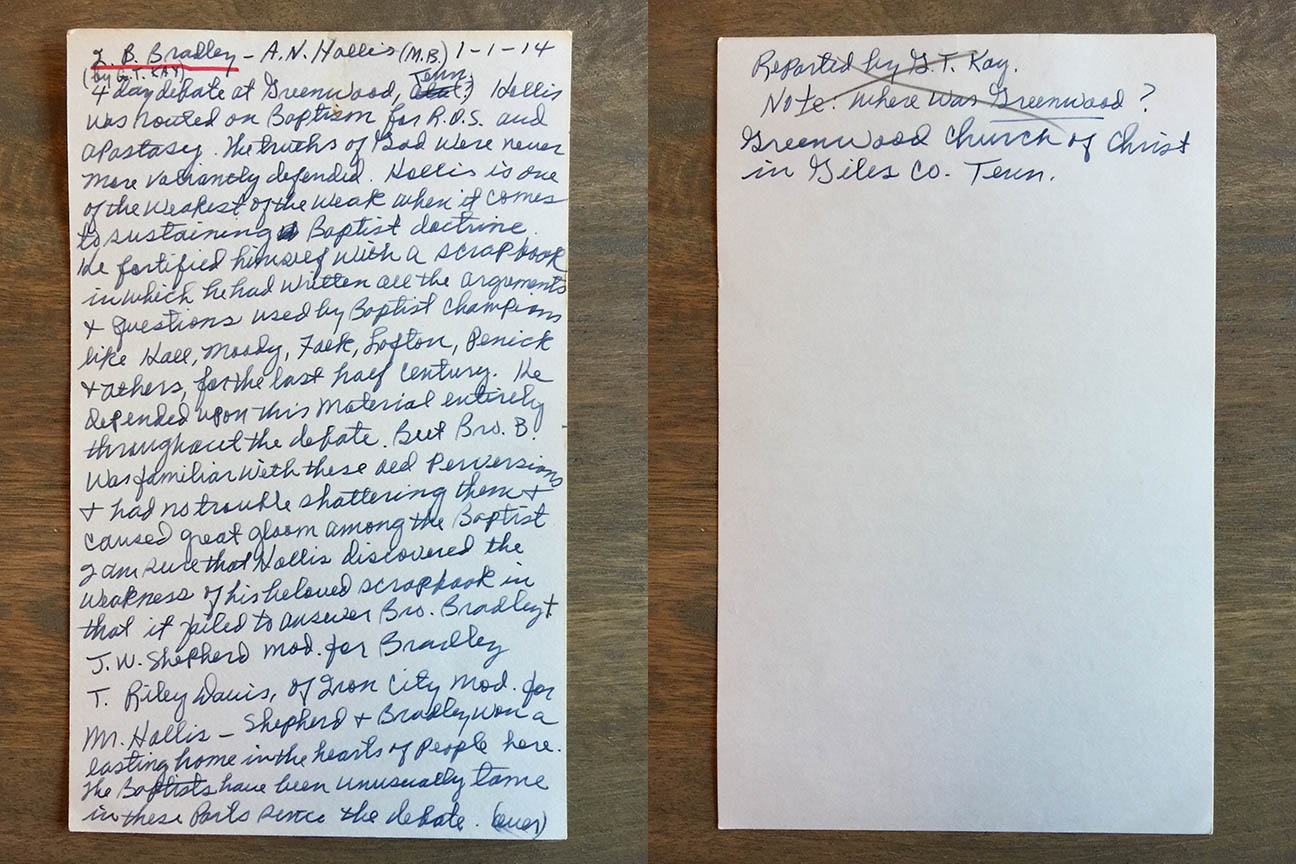 I. B. Bradley - A. N. Hollis (M.B.) 1-1-14
(by G.T. KAY) Tenn.
4 day debate at Greenwood, (Ala?) Hollis
was routed on Baptism for R.O.S. and
apostasy. The truths of God were never
more valiantly defended. Hollis is one
of the weakest of the weak when it comes
to sustaining Baptist doctrine.
He fortified himself with a scrapbook
in which he had written all the arguments
+ questions used by Baptist Champions
like Hall, Moody, Falk, Lofton, Penick
+ others, for the last half century. He
depended upon this material entirely
throughout the debate. But Bro. B.
was familiar with these old perversions
+ had no trouble shattering them +
caused great gloom among the Baptist
I am sure that Hollis discovered the
weakness of his beloved scrapbook in
that it failed to answer Bro. Bradley +
J. W. Shepherd mod. for Bradley
T. Riley Davis, of Iron City mod. for
Mr. Hollis - Shepherd + Bradley won a
lasting home in the hearts of people here.
The Baptists have been unusually tame
in these parts since the debate. (over)
Reported by G. T. Kay.
Note: where was Greenwood?
Greenwood Church of Christ
in Giles Co. Tenn.